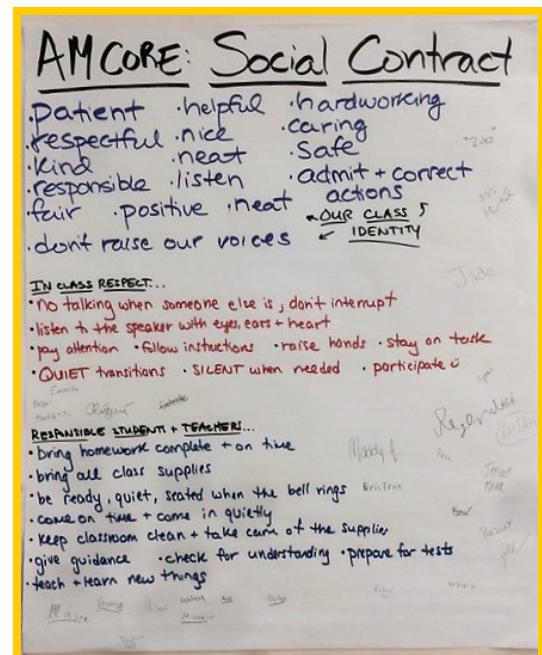 AM CORE: Social Contract
·patient ·helpful ·hardworking
·respectful ·nice ·caring
·Kind ·neat ·Safe
·responsible ·listen ·admit + correct
actions
·fair ·positive ·neat
OUR CLASS
IDENTITY
·don't raise our voices
IN CLASS RESPECT...
·no talking when someone else is, don't interrupt
·listen to the speaker with eyes, ears + heart
·pay attention ·follow instructions ·raise hands ·stay on task
·QUIET transitions ·SILENT when needed ·participate
RESPONSIBLE STUDENTS + TEACHERS...
·bring homework complete + on time
·bring all class supplies
·be ready, quiet, seated when the bell rings
·come on time + come in quietly
·keep classroom clean + take care of the supplies
·give guidance ·check for understanding ·prepare for tests
·teach + learn new things
Jade
Mason